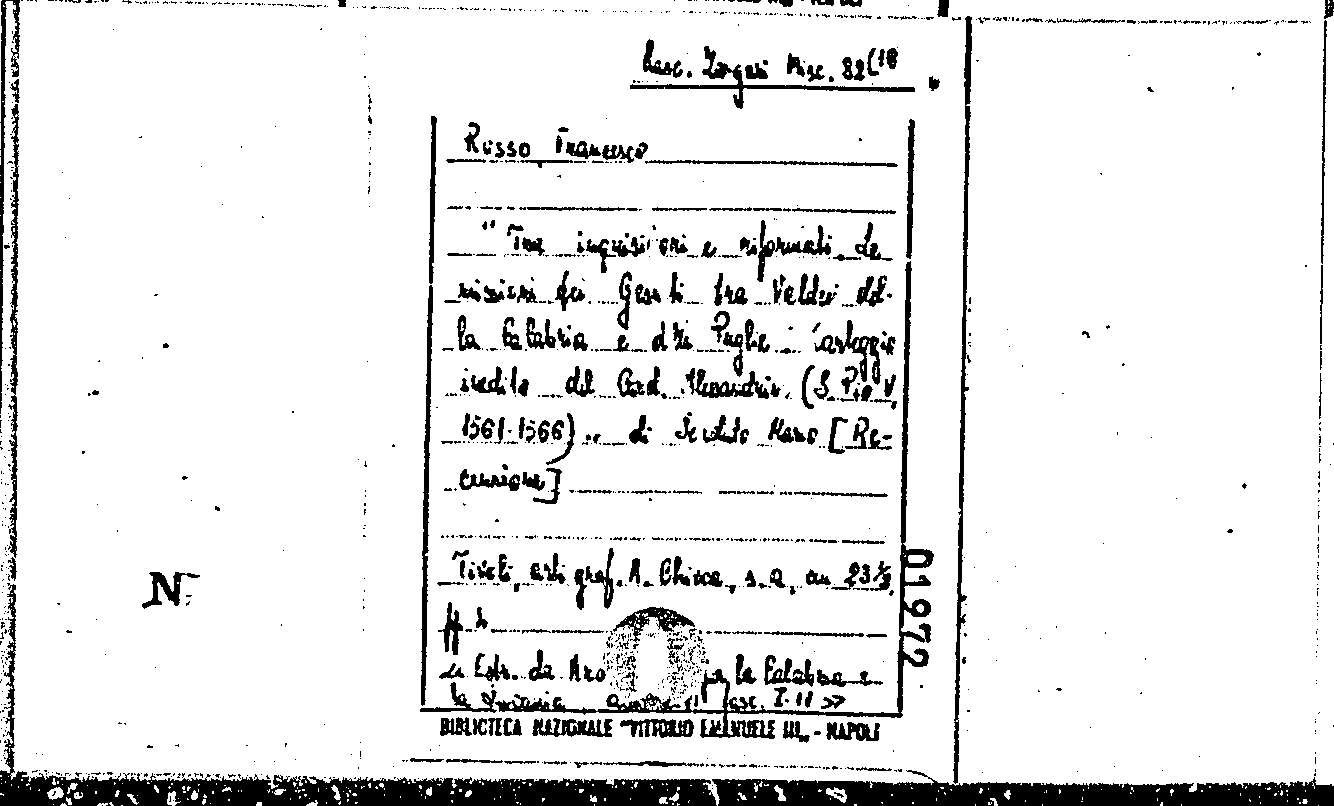 Racc. Zingari Misc. 82(18
Russo Francesco
"Tra inquisitori e riformati. Le
missioni dei Gesuiti tra Valdesi del-
la Calabria e delle Puglie. Carteggio
inedito del Card. Alessandrino (S. Pio V,
1561-1566)„ di Scaduto Mario [Re-
censione]
Tivoli, arti graf. A. Chicca, s. a, cm 23½
pp 2
Estr. da per la Calabria e
la Lucania, fasc. I-II >>
01972
N
BIBLIOTECA NAZIONALE "VITTORIO EMANUELE III„ - NAPOLI